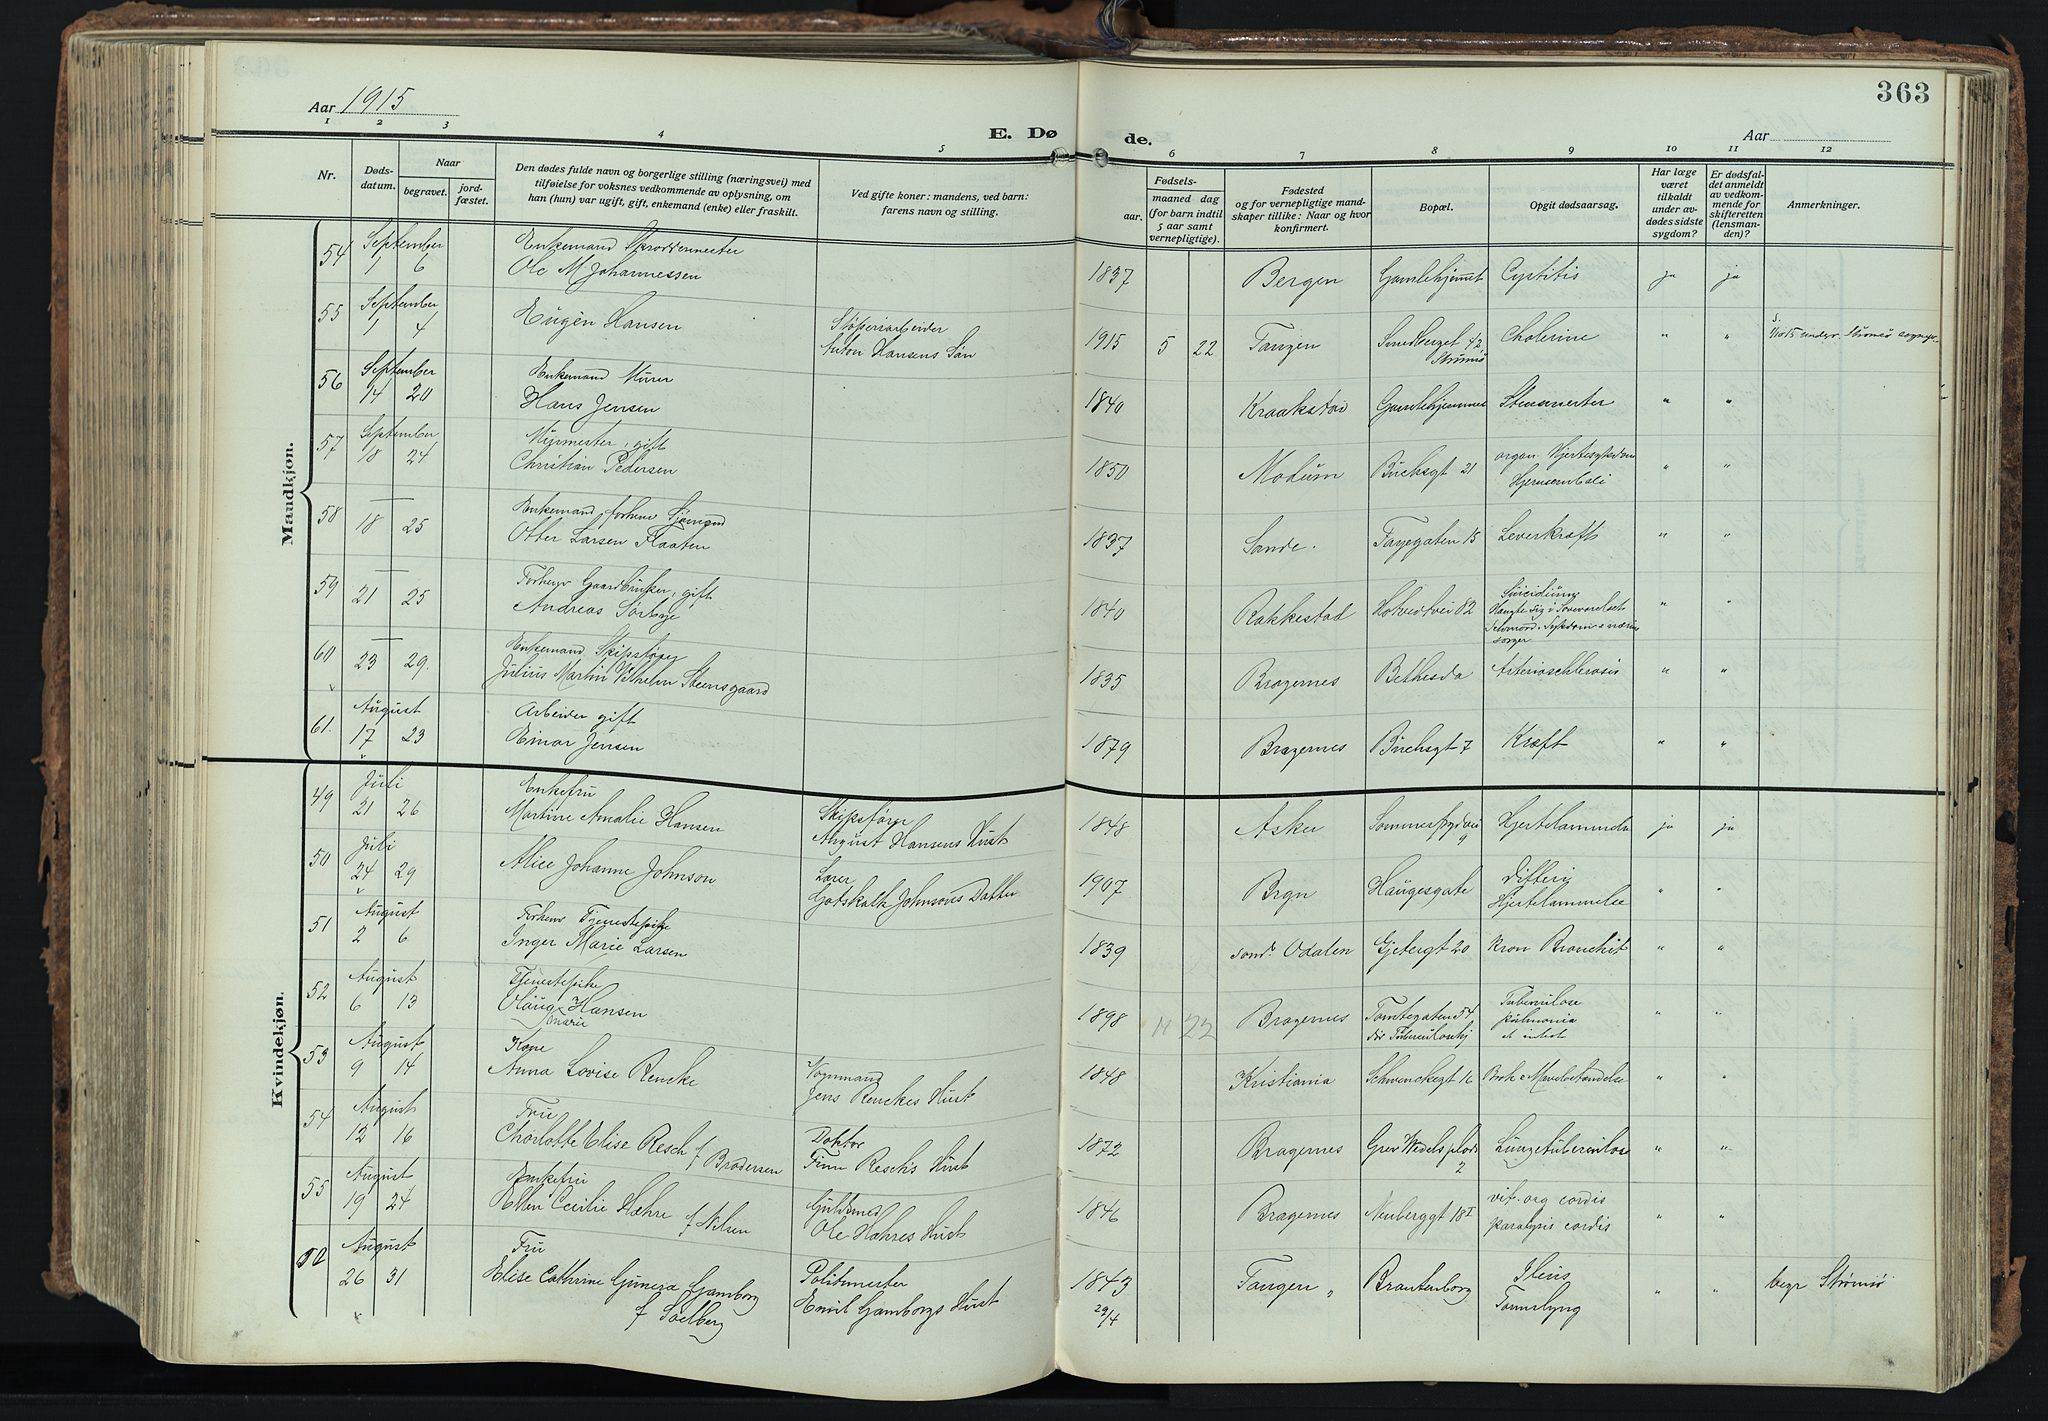 363
Aar 1915
E. Dø de.
Aar
1 2 3 4 5 6 7 8 9 10 11 12
Nr.
Døds-
datum.
Naar
begravet.
jord-
fæstet.
Den dødes fulde navn og borgerlige stilling (næringsvei) med
tilføielse for voksnes vedkommende av oplysning, om
han (hun) var ugift, gift, enkemand (enke) eller fraskilt.
Ved gifte koner: mandens, ved barn:
farens navn og stilling.
Fødsels-
aar.
maaned dag
(for barn indtil
5 aar samt
vernepligtige).
Fødested
og for vernepligtige mand-
skaper tillike: Naar og hvor
konfirmert.
Bopæl.
Opgit dødsaarsag.
Har læge
været
tilkaldt
under av-
dødes sidste
sygdom?
Er dødsfal-
det anmeldt
av vedkom-
mende for
skifteretten
(lensman-
den)?
Anmerkninger.
Mandkjøn.
54 September Enkemand
1 6 Ole M Johannessen 1837 Bergen Gamlehjemmet Cystitis ja ja
55 September Eugèn Hansen Støperiarbeider
1 4 Anton Hansens Søn 1915 5 22 Tangen Smedberget 42 Strømsø Cholerine " "
56 September Enkemand Murer
14 20 Hans Jensen 1840 Kraakstad Gamlehjemmet " "
57 September Murmester, gift
18 24 Christian Pedersen 1850 Modum Buchsgt 21 organ. Hjertesykdom
Hjerneemboli " "
58 — — Enkemand forhenv Sjømand
18 25 Otter Larsen Flaaten 1837 Sande. Tayegaten 15 Leverkræft " "
59 — — Forhenv Gaardbruker, gift
21 25 Andreas Sørbye 1840 Rakkestad Hotvedtvei 82 Suicidium
Hængte sig i Soveværelset
Selvmord. Sykdom & nærings
sorger " "
60 — — Enkemand Skipsfører
23 29. Julius Martin Vilhelm Steensgaard 1835 Bragernes Bethesda Arterioschlerosis " "
61. August Arbeider gift
17 23 Einar Jensen 1879 Bragernes Buchsgt 7 Kræft " "
Kvindekjøn.
49 Juli Enkefru
21 26 Martine Amalie Hansen Skipsfører
August Hansens Hust 1848 Asker Sommerfrydvei 9 Hjertelammelse ja ja
50 Juli
24 29 Alice Johanne Johnson Lærer
Gotskalk Johnsons Datter 1907 Brgn Haugesgate Difteri
Hjertelammelse " "
51 August Forhenv Tjenestepike
2 6 Inger Marie Larsen 1839 sond. Odalen Gjetergt 20 kron Bronchit " "
52 August Tjenestepike
6 13 Olaug Hansen
Marie 1898 11 22 Bragernes Tomtegaten 54
Tuberkulose
pulmonia
et intest " "
53 August Kone
9 14 Anna Lovise Rencke Vognmand
Jens Renckes Hust 1848 Kristiania Schwenckegt 16 " "
54 August Fru
12 16 Charlotte Elise Resch f Brodersen Doktor
Finn Resch's Hust 1872 Bragernes Grev Wedels plads 2 Lungetuberculose " "
55 August Enkefru
19 24 Ellen Cecilie Hæhre f Nilsen Guldsmed
Ole Hæhres Hust 1846 Bragernes Neuberggt 18 I vit. org cordis
paralysis cordis " "
August Fru
26 31 Elise Cathrine Gunera Gamborg
f Solberg Politimester
Emil Gamborgs Hust 1843
29/4 Tangen " Brantenborg Ileus
Tarmslyng " " begr Strømsø